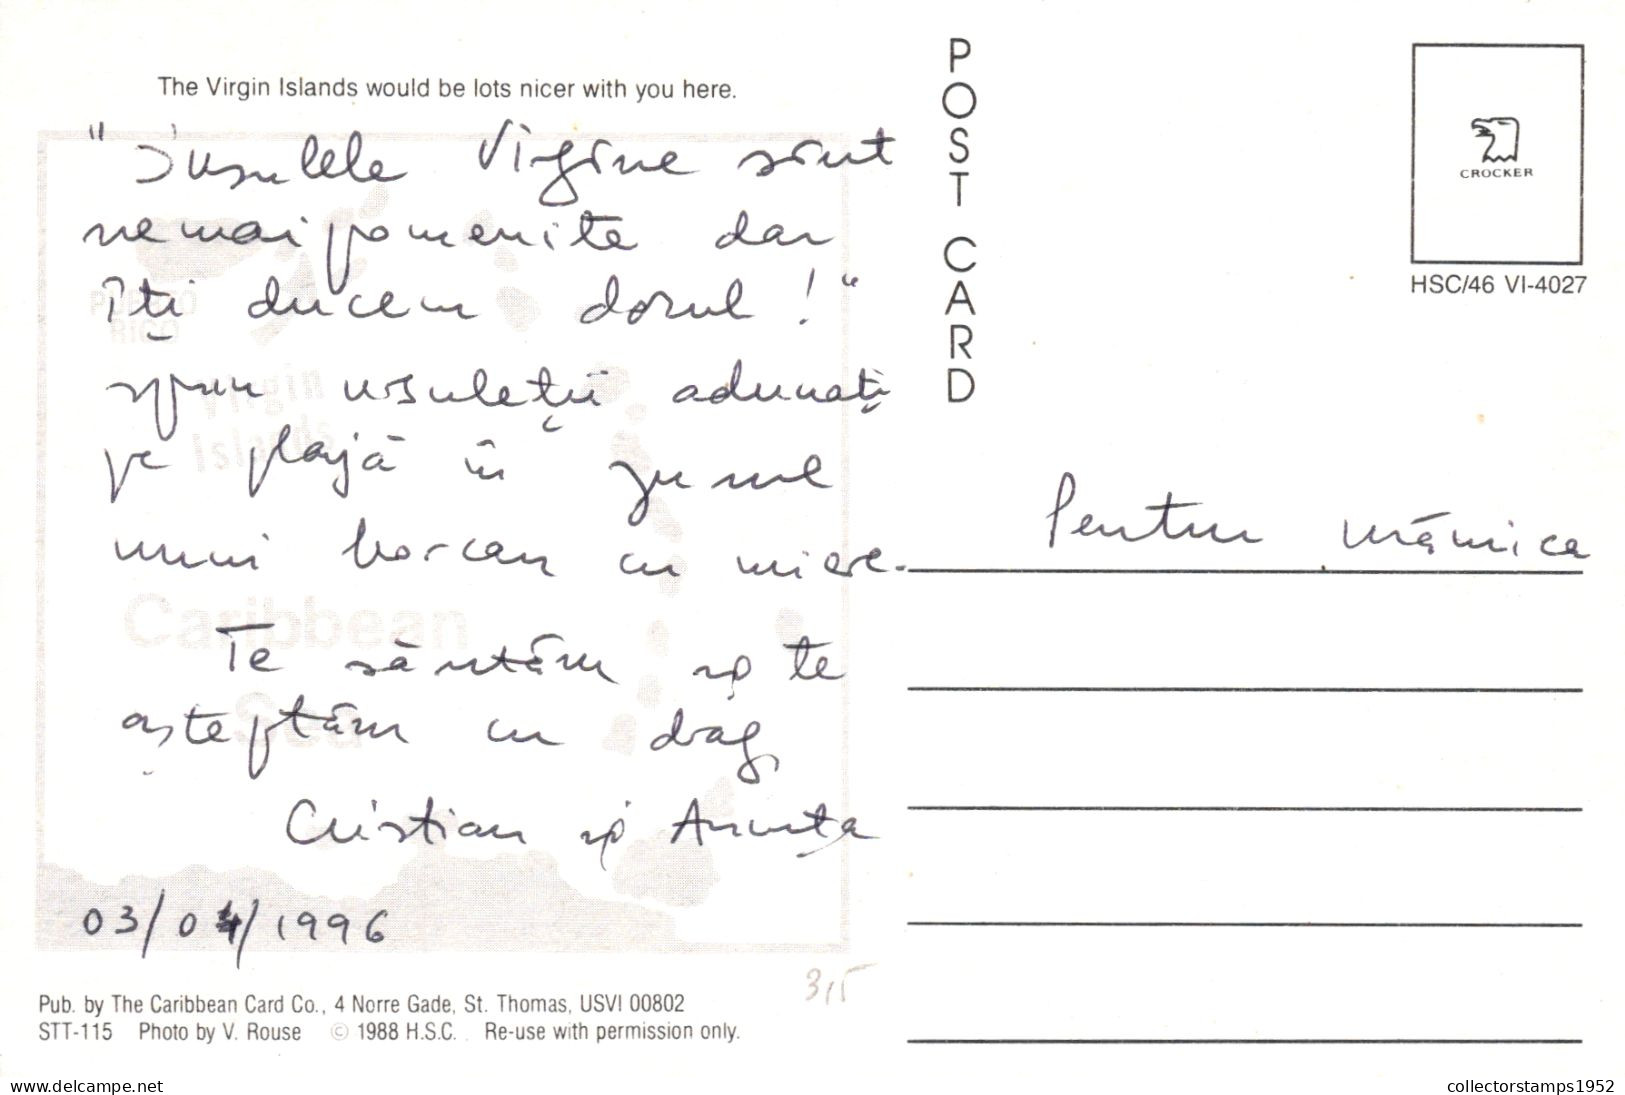 The Virgin Islands would be lots nicer with you here.
"Insulele Virgine sînt
nemaipomenite dar
îți ducem dorul!"
spun ursuleții adunați
pe plajă în jurul
unui borcan cu miere.
Te sărutăm și te
așteptăm cu drag,
Cristian și Ancuța
03/04/1996
Pub. by The Caribbean Card Co., 4 Norre Gade, St. Thomas, USVI 00802
STT-115 Photo by V. Rouse © 1988 H.S.C. Re-use with permission only.
PUERTO
RICO
Virgin
Islands
Caribbean
Sea
315
POST CARD
CROCKER
HSC/46 VI-4027
Pentru mămica
www.delcampe.net
collectorstamps1952